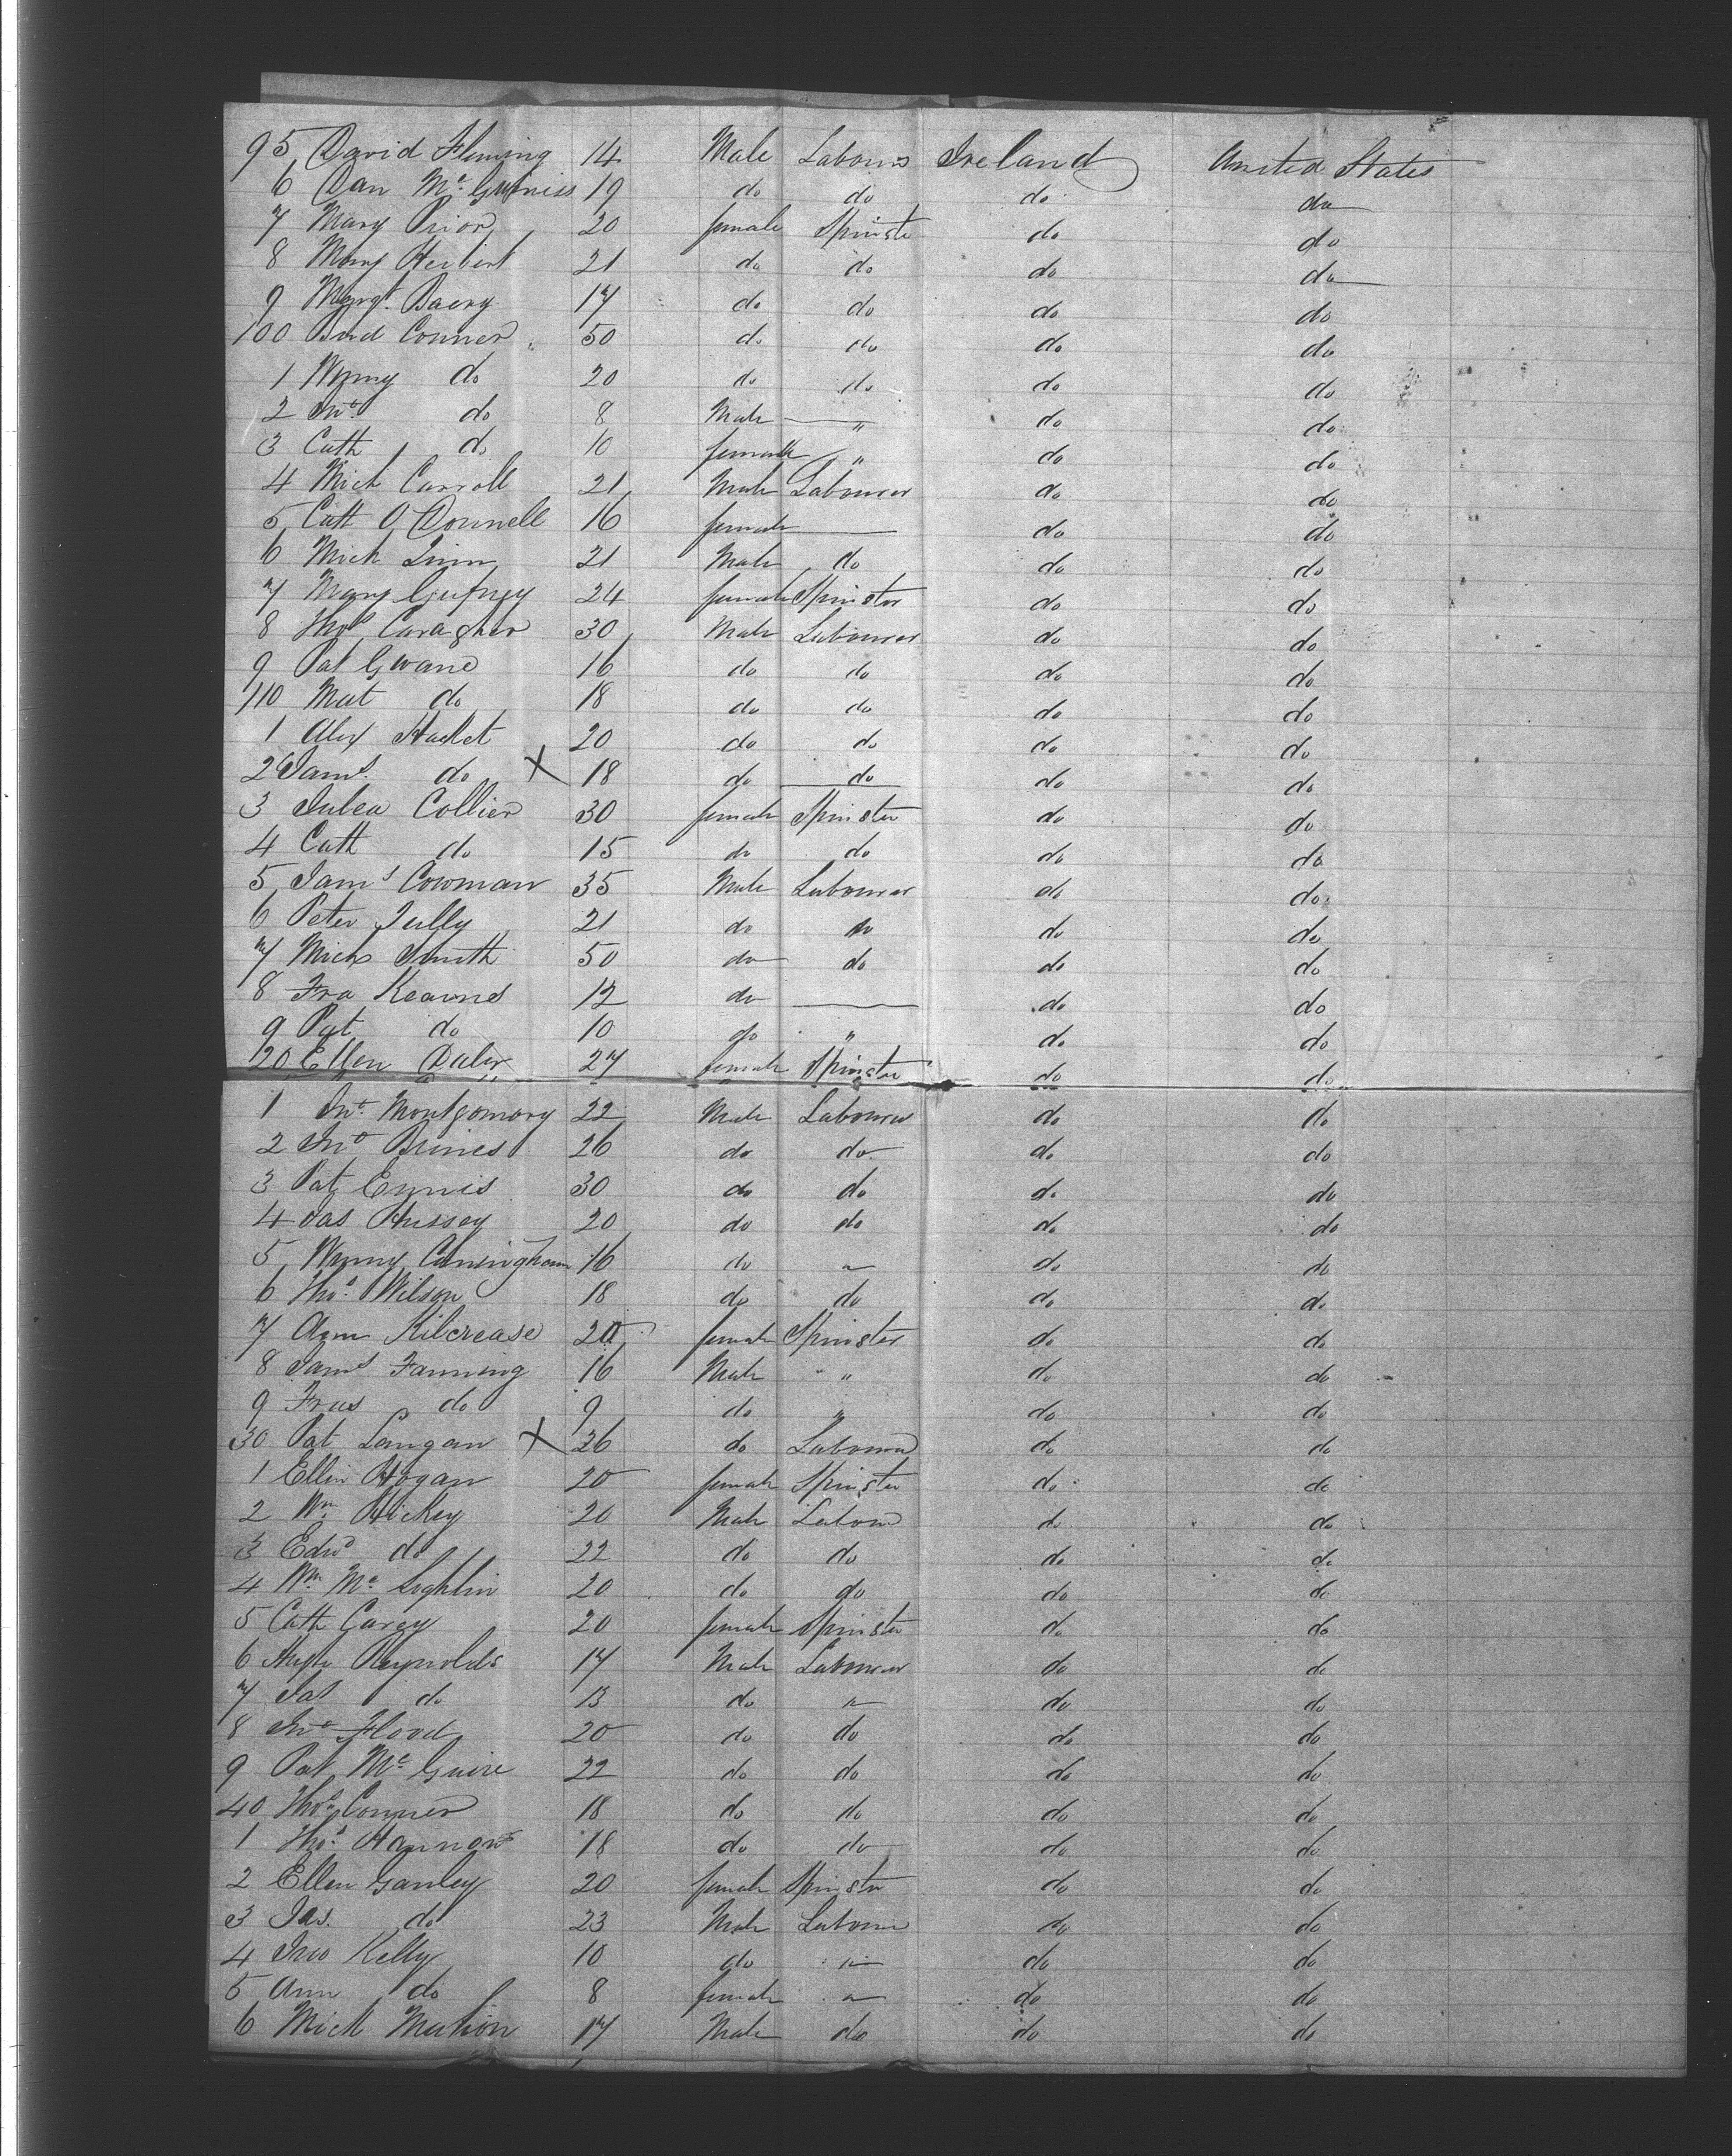 95 David Fleming 14 Male Labours Ireland United States
6 Dan Mc Guiniss 19 do do do do
7 Mary Prior 20 female Spinste do do
8 Mary Herbert 21 do do do do
9 Margt. 17 do do do do
100 Brid Conner 50 do do do do
1 Winny do 20 do do do do
2 Jno. do 8 Male " do do
3 Cath do 10 female " do do
4 Mich Carroll 21 Male Labourer do do
5 Cath O Donnell 16 female — do do
6 Mich 21 Male do do do
7 Mary Gufney 24 female Spinster do do
8 Thos Caragher 30 Male Labourer do do
9 Pat Gwane 16 do do do do
110 Mat do 18 do do do do
1 Alex Hacket 20 do do do do
2 Jams. do X 18 do do do do
3 Julea Collier 30 female Spinster do do
4 Cath do 15 do do do do
5 Jams Cowman 35 Male Labourer do do
6 Peter Tully 21 do do do do
7 Mich Smith 50 do do do do
8 Fra Kearnes 12 do — do do
9 Pat do 10 do " do do
120 Ellen Daley 27 female Spinster do do
1 Jno. Montgomary 22 Male Labourer do do
2 Jno Brines 26 do do do do
3 Pat Ennis 30 do do do do
4 Jas Hussey 20 do do do do
5 Winny Cuningham 16 do " do do
6 Thos. Wilson 18 do do do do
7 Ann Kilcrease 20 female Spinster do do
8 Jams Fanning 16 Male " do do
9 Fras do 9 do " do do
30 Pat Langan X 26 do Labourer do do
1 Ellin Hogan 20 female Spinster do do
2 Wm. Hickey 20 Male Labour do do
3 Edwd do 22 do do do do
4 Wm. Mc Loghlin 20 do do do do
5 Cath Garey 20 female Spinster do do
6 Hugh Reynolds 17 Male Labourer do do
7 Jas do 13 do " do do
8 Jno Flood 20 do do do do
9 Pat Mc Guire 22 do do do do
40 Thos. Conner 18 do do do do
1 Thos. Hannon 18 do do do do
2 Ellen Ganley 20 female Spinster do do
3 Jas. do 23 Male Labourer do do
4 Jno Kelly 10 do " do do
5 Ann do 8 female " do do
6 Mich Mahon 17 Male do do do